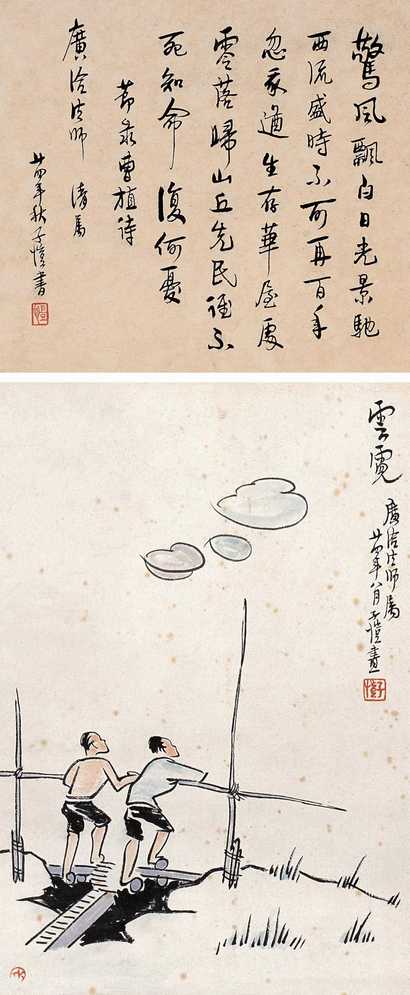 驚風飄白日光景馳
西流盛時不可再百年
忽我遒生存華屋處
零落歸山丘先民誰不
死知命復何憂
節彔曹植詩
廣洽法師 清属
廿四年秋子愷書
雲霓
廣洽法師属
廿四年八月子愷畫
子愷